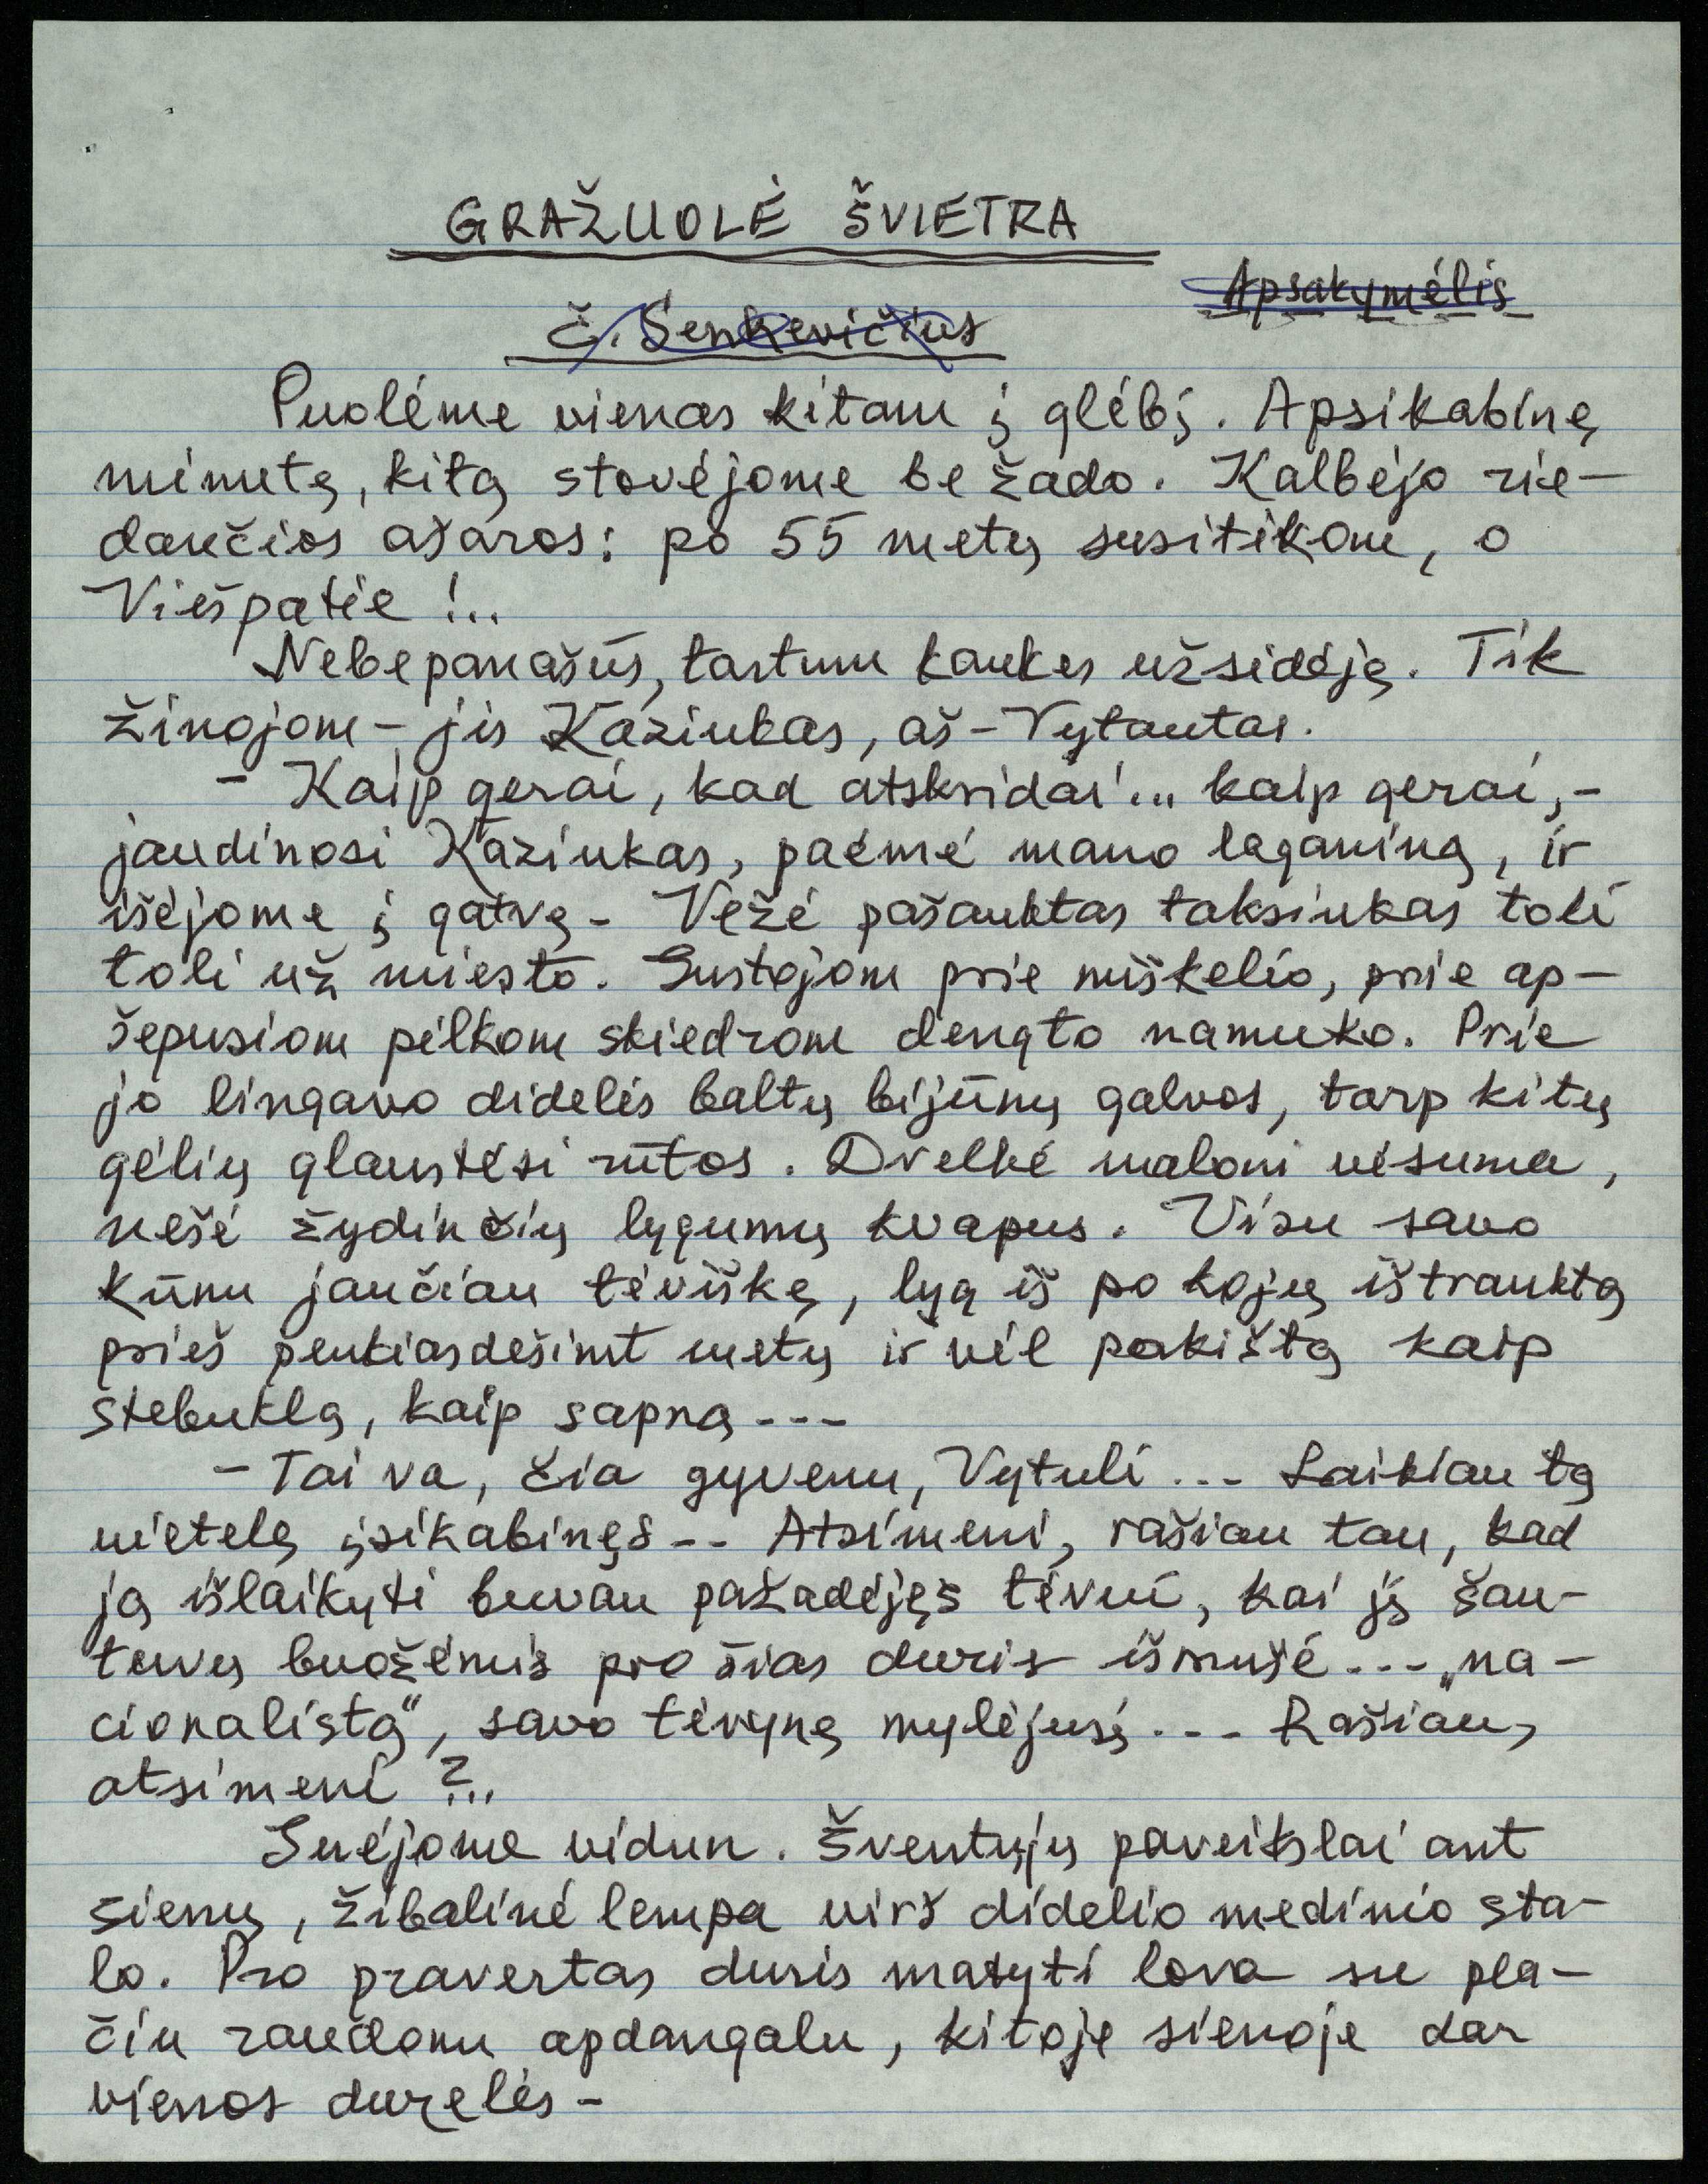 GRAŽUOLĖ ŠVIETRA
Apsakymėlis
Č. Senkevičius
Puolėme vienas kitam į glėbį. Apsikabinę
minutę, kitą stovėjome be žado. Kalbėjo rie-
dančios ašaros: po 55 metų susitikom, o
Viešpatie!..
Nebepanašūs, tartum kaukes užsidėję. Tik
žinojom - jis Kaziukas, aš - Vytautas.
- Kaip gerai, kad atskridai... kaip gerai, -
jaudinosi Kaziukas, paėmė mano lagaminą, ir
išėjome į gatvę. Vežė pašauktas taksiukas toli
toli už miesto. Sustojom prie miškelio, prie ap-
šepusiom pilkom skiedrom dengto namuko. Prie
jo lingavo didelės baltų bijūnų galvos, tarp kitų
gėlių glaustėsi rūtos. Dvelkė maloni vėsuma,
nešė žydinčių lygumų kvapus. Visu savo
kūnu jaučiau tėviškę, lyg iš po kojų ištrauktą
prieš penkiasdešimt metų ir vėl pakištą kaip
stebuklą, kaip sapną ---
- Tai va, čia gyvenu, Vytuli... Laikiau tą
vietelę įsikabinęs -- Atsimeni, rašiau tau, kad
ją išlaikyti buvau pažadėjęs tėvui, kai jį šau-
tuvų buožėmis pro šias duris išmušė --- „na-
cionalistą“, savo tėvynę mylėjusį --- Rašiau,
atsimeni?..
Suėjome vidun. Šventųjų paveikslai ant
sienų, žibalinė lempa virš didelio medinio sta-
lo. Pro pravertas duris matyti lova su pla-
čiu raudonu apdangalu, kitoje sienoje dar
vienos durelės -